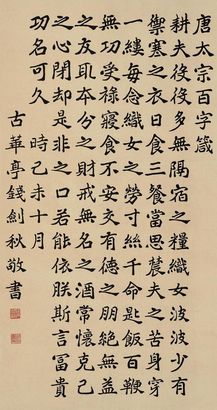 唐太宗百字箴
耕夫役役多無隔宿之糧織女波波少有
禦寒之衣日食三餐當思農夫之苦身穿
一縷每念織女之勞寸絲千命匙飯百鞭
無功受祿寢食不安交有德之朋絕無益
之友取本分之財戒無名之酒常懷克己
之心閉却是非之口若能依朕斯言富貴
功名可久 時己未十月
古華亭錢劍秋敬書